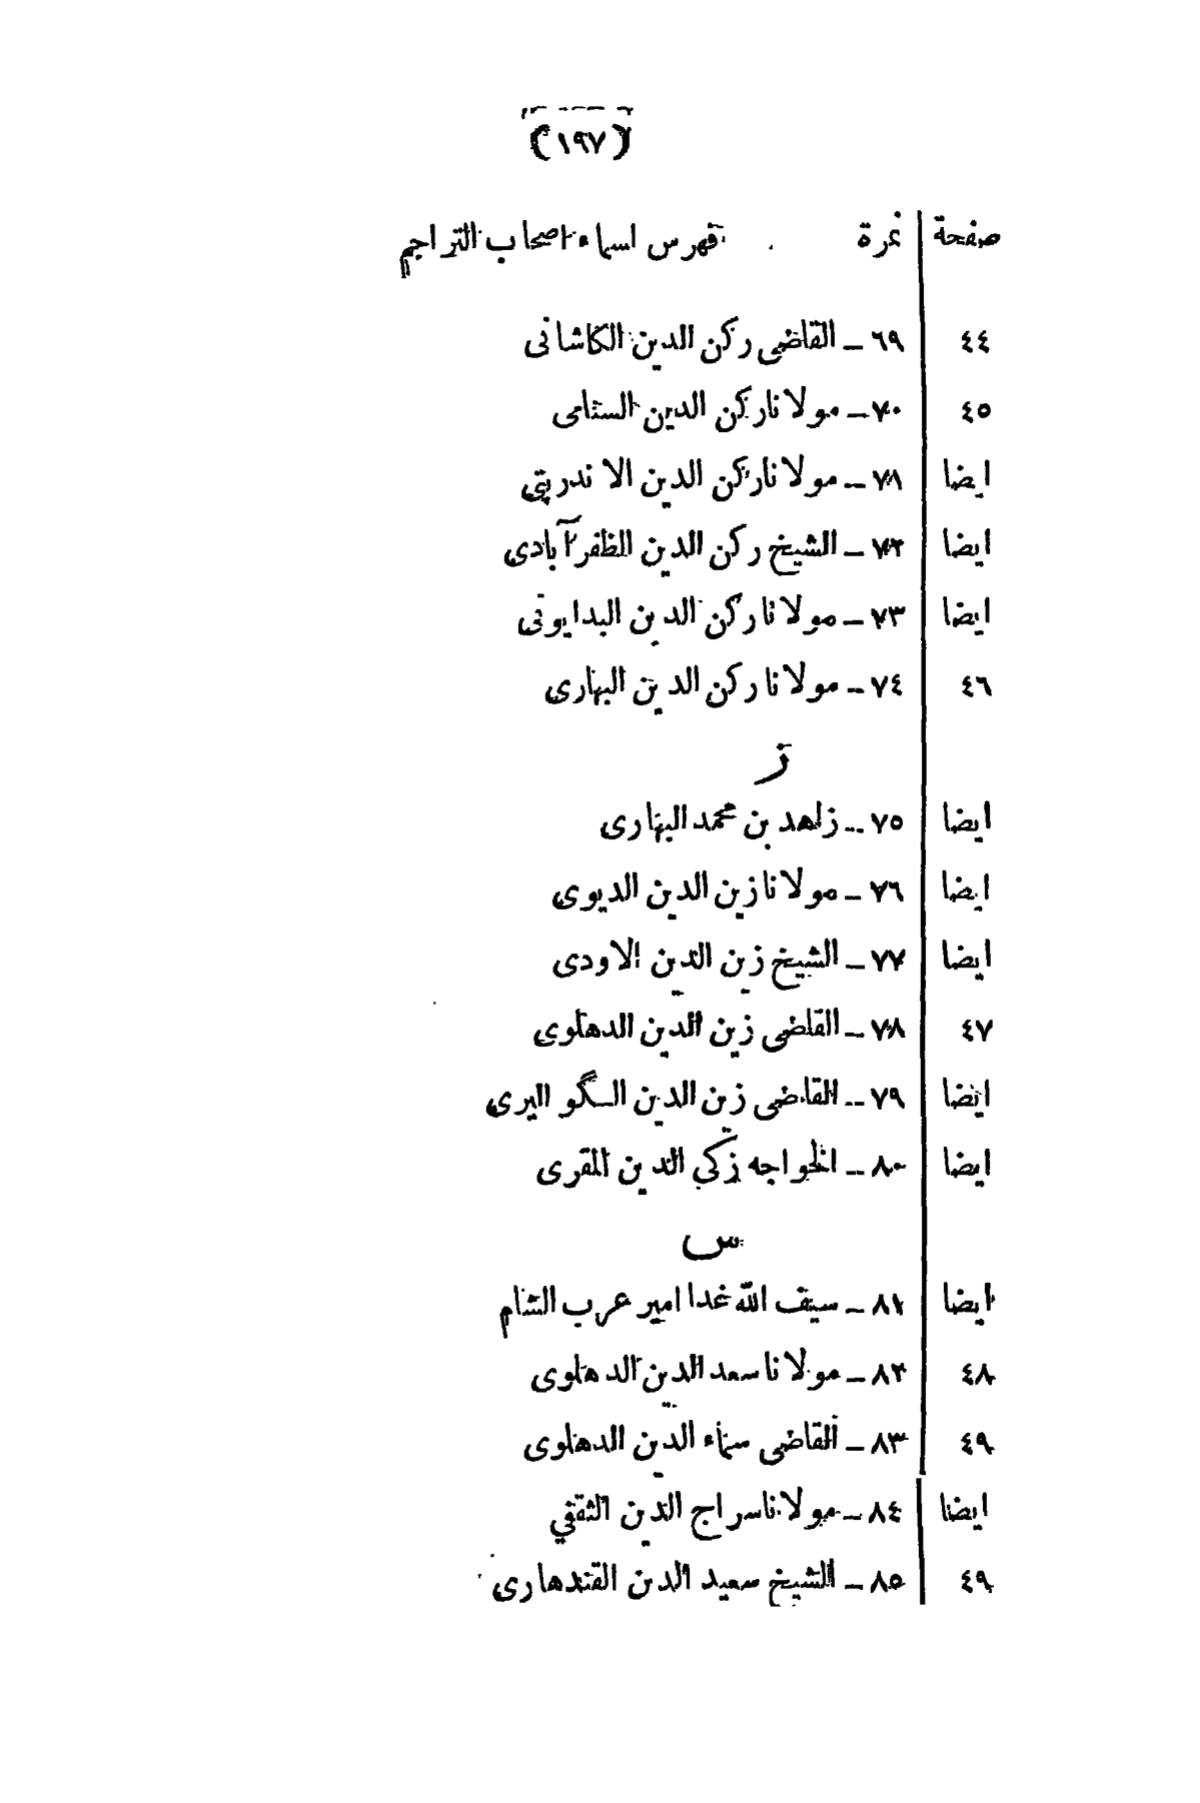 (١٩٧)
صفحة نمرة فهرس اسماء اصحاب التراجم
٤٤ ٦٩ – القاضى ركن الدين الكاشانى
٤٥ ٧٠ – مولانا ركن الدين السنامى
ايضا ٧١ – مولانا ركن الدين الاندريتى
ايضا ٧٢ – الشيخ ركن الدين الظفرآبادى
ايضا ٧٣ – مولانا ركن الدين البدايونى
٤٦ ٧٤ – مولانا ركن الدين البهارى
ز
ايضا ٧٥ – زاهد بن محمد البهارى
ايضا ٧٦ – مولانا زين الدين الديوى
ايضا ٧٧ – الشيخ زين الدين الاودى
٤٧ ٧٨ – القاضى زين الدين الدهلوى
ايضا ٧٩ – القاضى زين الدين الگواليرى
ايضا ٨٠ – الخواجه زكي الدين المقرى
س
ايضا ٨١ – سيف الله غدا امير عرب الشام
٤٨ ٨٢ – مولانا سعد الدين الدهلوى
٤٩ ٨٣ – القاضى سماء الدين الدهلوى
ايضا ٨٤ – مولانا سراج الدين الثقفي
٤٩ ٨٥ – الشيخ سعيد الدين القندهارى